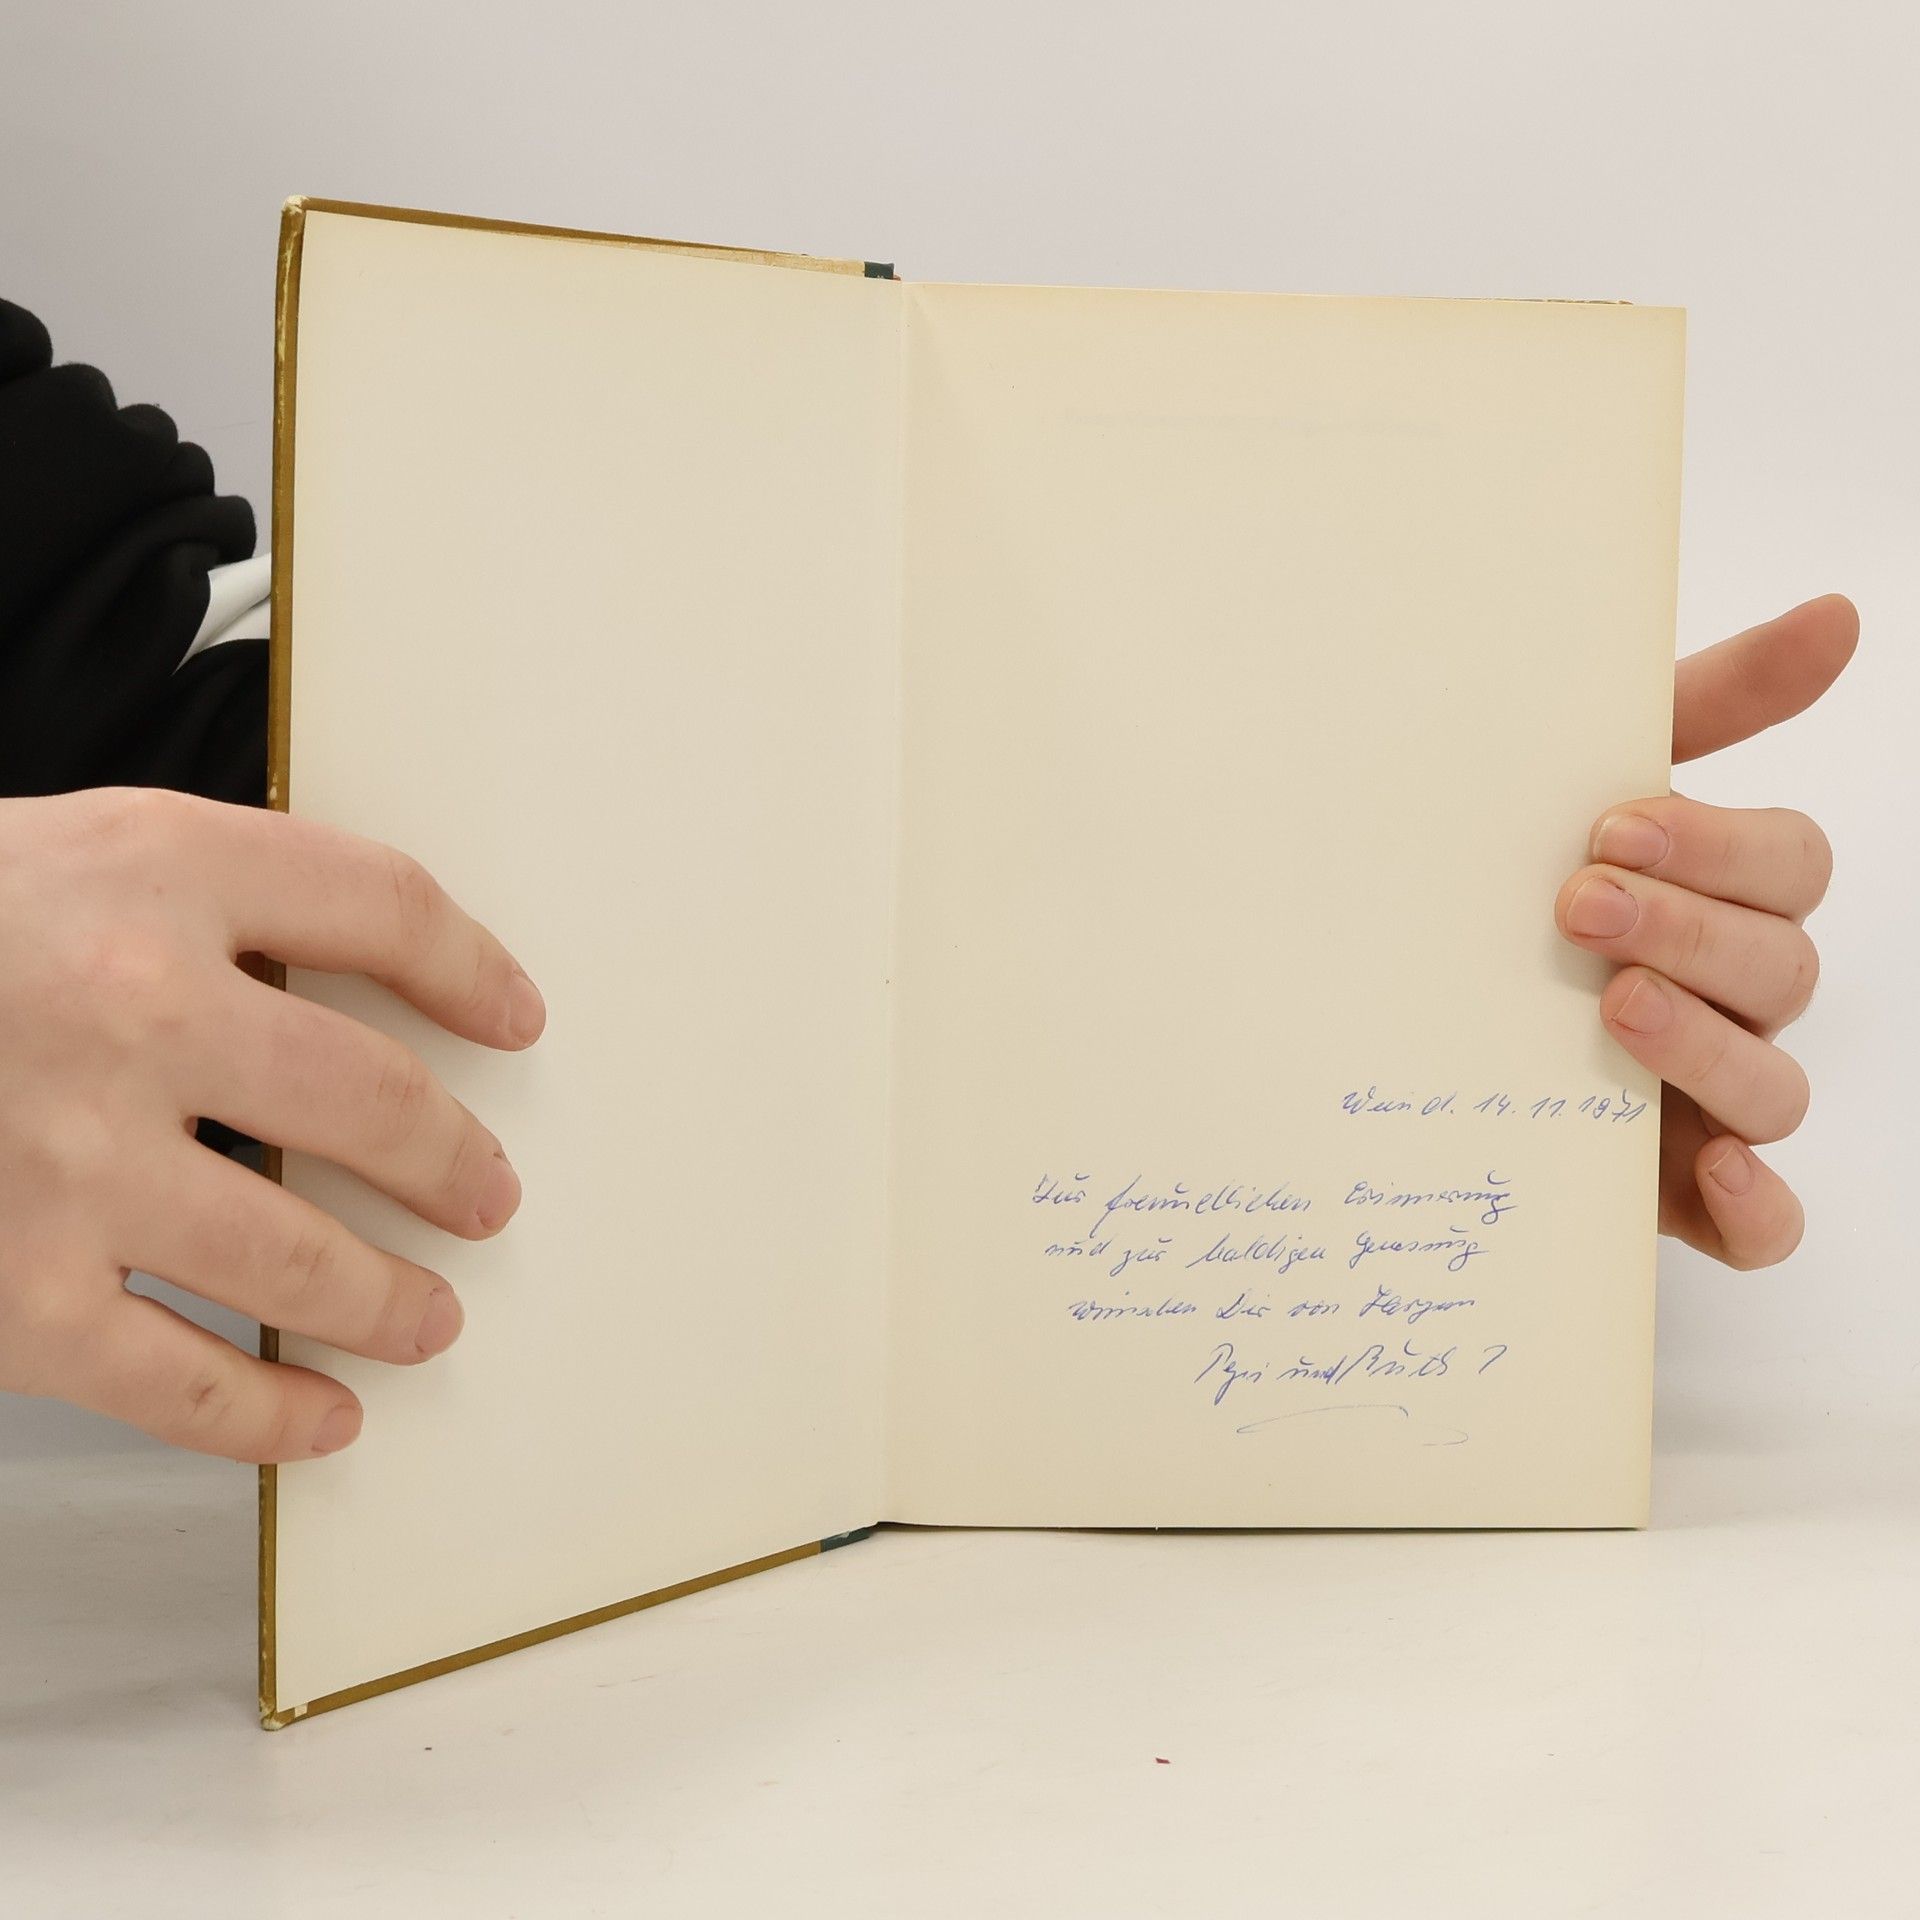 Wien d. 14. 11. 1971
Zur freundlichen Erinnerung
und zur baldigen Genesung
wünschen Dir von Herzen
und Ruth